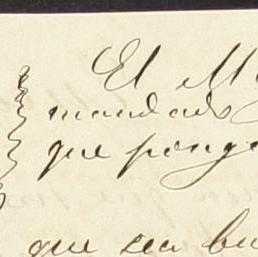 El M
mandado
que ponga
que sea bu